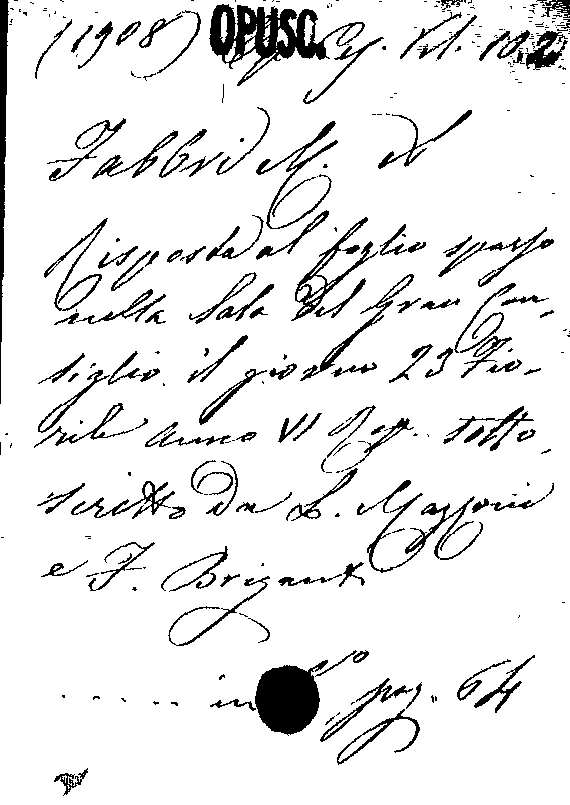 (1908) OPUSC. Cs. Vol. 10.2
Fabbri M. d
Risposta al foglio sparso
nella Sala del Gran Con-
siglio il giorno 23 Fio-
rile anno VI Rep. sotto-
scritto da L. Mazzoni
e F. Briganti
..... in 8vo, pag. 64